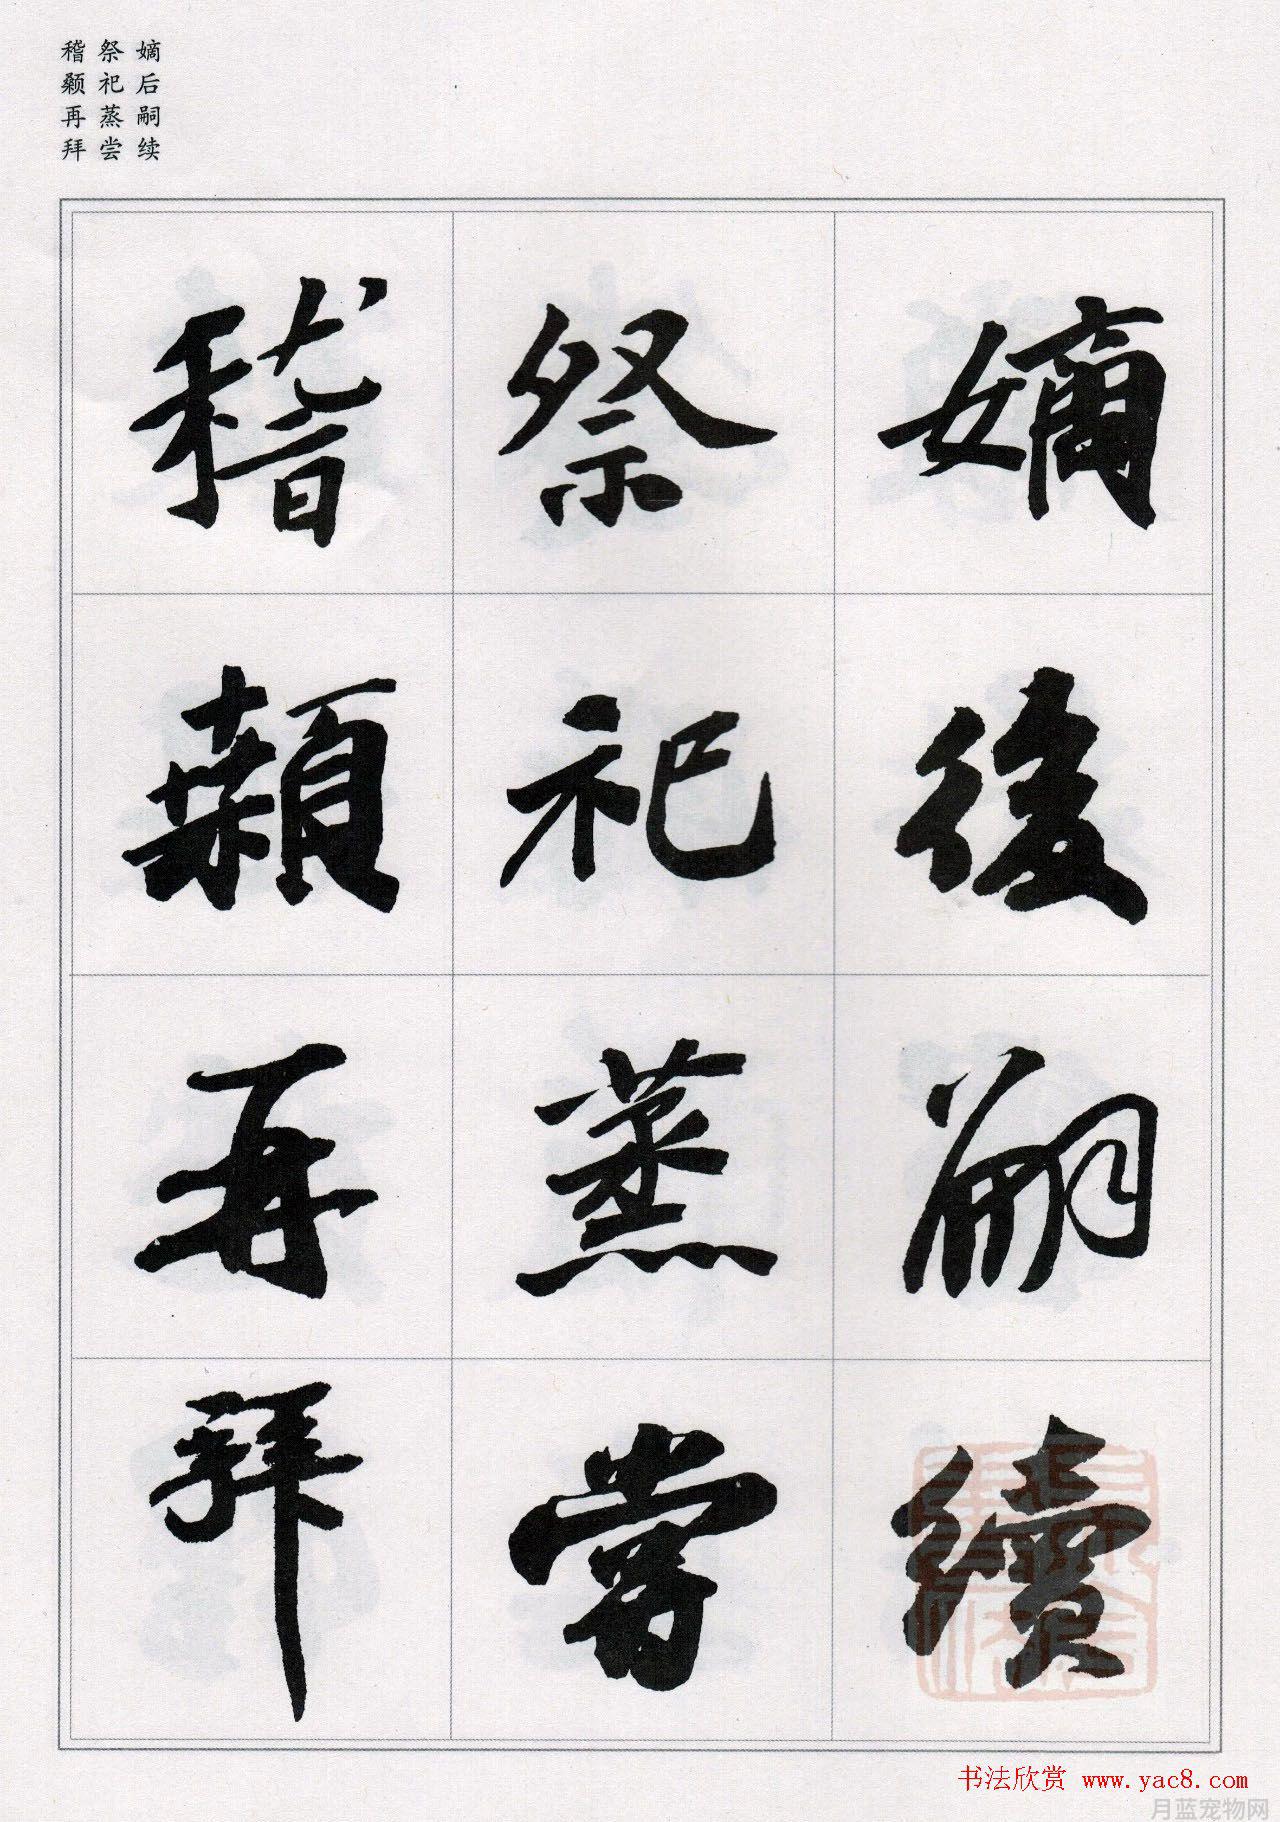 嫡后嗣续
祭祀蒸尝
稽颡再拜
嫡後嗣續
祭祀蒸嘗
稽顙再拜
书法欣赏 www.yac8.com
月蓝宠物网